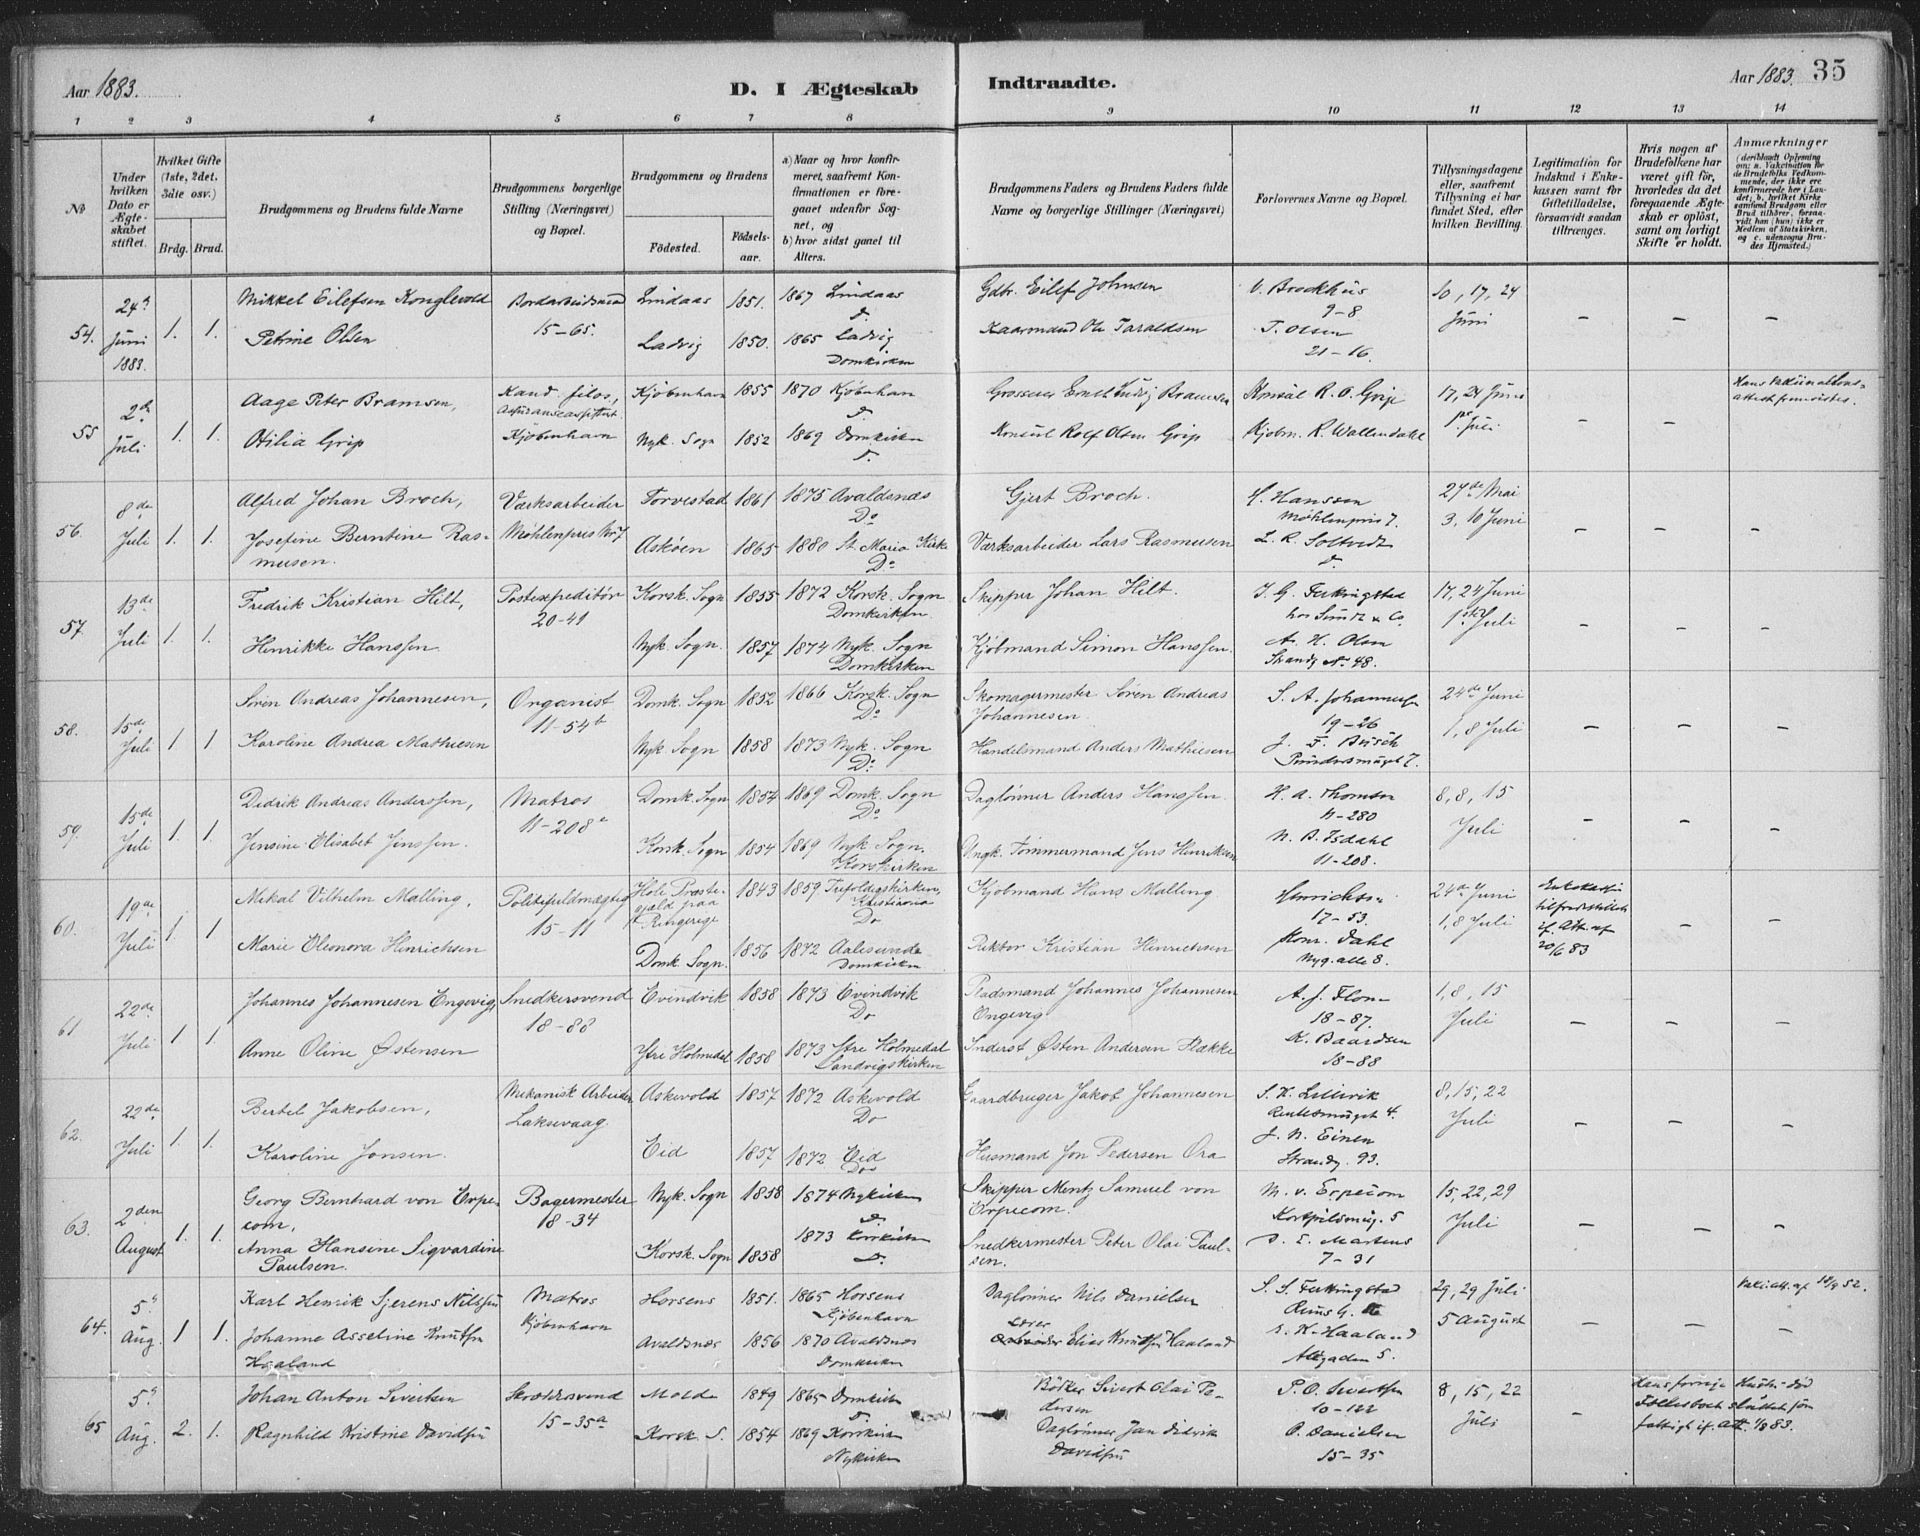 Aar 1883.
D. I Ægteskab Indtraadte.
Aar 1883. 35
1 2 3 4 5 6 7 8 9 10 11 12 13 14
№
Under hvilken Dato er Ægteskabet stiftet.
Hvilket Gifte (1ste, 2det, 3die osv.)
Brdg. Brud.
Brudgommens og Brudens fulde Navne
Brudgommens borgerlige Stilling (Næringsvei) og Bopæl.
Brudgommens og Brudens
Födested.
Födselsaar.
a) Naar og hvor konfirmeret, saafremt Konfirmationen er foregaaet udenfor Sognet, og
b) hvor sidst gaaet til Alters.
Brudgommens Faders og Brudens Faders fulde Navne og borgerlige Stillinger (Næringsvei)
Forlovernes Navne og Bopæl.
Tillysningsdagene eller, saafremt Tillysning ei har fundet Sted, efter hvilken Bevilling.
Legitimation for Indskud i Enkekassen samt for Giftetilladelse, forsaavidt saadan tiltrænges.
Hvis nogen af Brudefolkene har været gift för, hvorledes da det foregaaende Ægteskab er oplöst, samt om lovligt Skifte er holdt.
Anmærkninger
(deriblandt Oplysning om: a. Vakcination for de Brudefolks Vedkommende, der ikke ere konfirmerede her i Landet; b. hvilket Kirkesamfund Brudgom eller Brud tilhører, forsaavidt han (hun) ikke er Medlem af Statskirken, og c. udensogns Brudes Hjemsted.)
54. 24d Juni 1883. 1. 1.
Mikkel Eilefsen Konglevold Bordarbeidsmand 15-65. Lindaas 1851. 1867 Lindaas d. Gdbr. Eilef Johnsen V. Brockhus 9-8 10, 17, 24 Juni – – –
Petrine Olsen Ladvig 1850. 1865 Ladvig Domkirken Kaarmand Ole Taraldsen T. Olsen 21-16.
55 2de Juli 1. 1.
Aage Peter Bramsen, Kand. filos., Assuranceaspirant. Kjøbenhavn Kjøbenhavn 1855 1870 Kjøbenhavn d. Grosserer Emil Ludvig Bramsen Konsul R. O. Grip 17, 24 Juni 1ste Juli – – Hans vakcinationsattest fremvistes.
Otilia Grip Nyk. Sogn 1852 1869 Domkirken d. Konsul Rolf Olsen Grip Kjøbm. R. Wallendahl
56. 8de Juli 1. 1.
Alfred Johan Broch, Værksarbeider Møhlenpris No 7 Torvestad 1861 1875 Avaldsnæs Do Gjert Broch. H. Hanssen Møhlenpris 7. 27de Mai 3, 10 Juni – – –
Josefine Berntine Rasmusen. Askøen 1865 1880 St. Maria Kirke Do Værksarbeider Lars Rasmusen L. R. Soltvedt d.
57. 13de Juli 1. 1.
Fredrik Kristian Hilt, Postexpeditør 20-41 Korsk. Sogn 1855 1872 Korsk. Sogn Domkirken. Skipper Johan Hilt. T. G. Ferkingstad hos Sundt & Co. 17, 24 Juni 1ste Juli – – –
Henrikke Hanssen. Nyk. Sogn. 1857 1874 Nyk. Sogn Domkirken Kjøbmand Simon Hanssen. A. H. Olsen Strandg No 48.
58. 15de Juli 1 1
Søren Andreas Johannesen, Organist 11-54b Domk. Sogn 1852 1866 Korsk. Sogn Do Skomagermester Søren Andreas Johannesen S. A. Johannesen 19-26 24de Juni 1, 8 Juli – – –
Karoline Andrea Mathiesen Nyk. Sogn 1858 1873 Nyk. Sogn Do Handelsmand Anders Mathiesen J. F. Busch
59. 15de Juli 1. 1.
Didrik Andreas Anderssen, Matros 11-208a Domk. Sogn 1854 1869 Domk. Sogn Do Daglønner Anders Hanssen. H. A. Thomsen 11-280 8, 8, 15 Juli – – –
Jensine Elisabet Jenssen. Korsk. Sogn 1854 1869 Nyk. Sogn. Korskirken Ungk. Tømmermand Jens Henriksen N. B. Isdahl 11-208.
60. 19de Juli 1. 1
Mikal Vilhelm Malling, Politifuldmægtig 15-11 Hole Præstegjeld paa Ringerige 1843 1859 Trefoldigskirken, Kristiania Do Kjøbmand Hans Malling Hinrichsen 17-53. 24de Juni 1, 8 Juli Enkekassen tilfredsstillet if. Att. af 20/6 83 – –
Marie Eleonora Hinrichsen Domk. Sogn. 1856 1872 Aalesund Domkirken Rektor Kristian Hinrichsen Konr. Dahl Nyg. alle 8.
61 22de Juli 1 1
Johannes Johannesen Engevig, Snedkersvend 18-88 Evindvik 1858 1873 Evindvik Do Pladsmand Johannes Johannesen Engevig A. J. Flon 18-87. 1, 8, 15 Juli – – –
Anne Oline Østensen Ytre Holmedal 1858 1873 Ytre Holmedal Sandvigskirken Inderst Østen Andersen Flække K. Baardsen 18-88
62. 22de Juli 1. 1.
Bertel Jakobsen, Mekanisk Arbeider Laksevaag Askevold 1857 1872 Askevold Do Gaardbruger Jakob Johannesen S. K. Lillevik 4. 8, 15, 22 Juli – – –
Karoline Jonsen. Eid 1857 1872 Eid Do Husmand Jon Pedersen Øra J. N. Einen Strandg. 93.
63. 2den August 1. 1.
Georg Bernhard von Erpecom, Bagermester 18-34 Nyk. Sogn 1858 1874 Nykirken d. Skipper Mentz Samuel von Erpecom. M. v. Erpecom 5 15, 22, 29 Juli – – –
Anna Hansine Sigvardine Paulsen. Korsk. Sogn 1858 1873 Korskirken D. Snedkermester Peter Olai Paulsen. E. Martens 7-31
64. 5d Aug. 1 1.
Karl Henrik Sjerens Nilssen Matros Kjøbenhavn Horsens 1851. 1865 Horsens Kjøbenhavn Daglønner Nils Danielsen S. S. Ferkingstad 29, 29 Juli 5 August – – 52.
Johanne Asseline Knutsen Haaland Avaldsnæs 1856 1870 Avaldsnæs Domkirken Lærer Elias Knutsen Haaland E. K. Haaland Allegaden 5.
65 5d Aug. 2. 1.
Johan Anton Sivertsen Skræddersvend 15-35a Molde 1849 1865 Domkirken d. Bødker Sivert Olai Pedersen P. O. Sivertsen 10-122 8, 15, 22 Juli – Hans forrige Hustru død fattigt if. Att. 83.
Ragnhild Kristine Davidsen Korsk. S. 1854 1869 Korskirken Nykirken Daglønner Jan Didrik Davidsen O. Danielsen 15-35